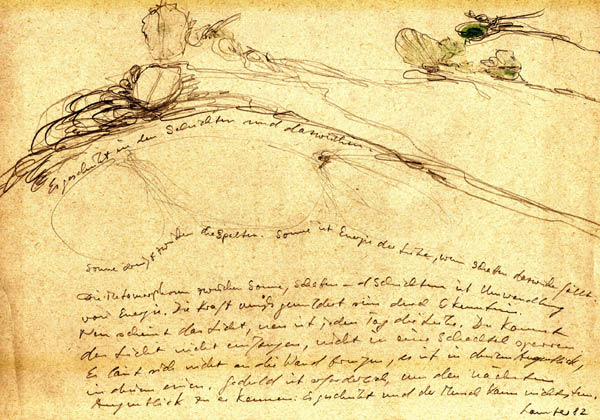 Es geschieht in den Schichten und dazwischen
Sonne dringt durch die Spalten. Sonne ist Energie des Lichts, wenn Schatten dazwischen fällt.
Die Metamorphose zwischen Sonne, Schatten und Schichten ist Umwandlung
von Energie. Die Kraft sind durch Erkenntnis.
Neu scheint das Licht, neu ist jeden Tag die Liebe. Du kannst
das Licht nicht einfangen, nicht in eine Schachtel sperren
Es lässt sich nicht an die Wand bringen, es ist in diesem Augenblick,
in diesem einen. Geduld ist erforderlich, um den nächsten
Augenblick zu erkennen. Es geschieht und der Mensch kann nichts tun.
82